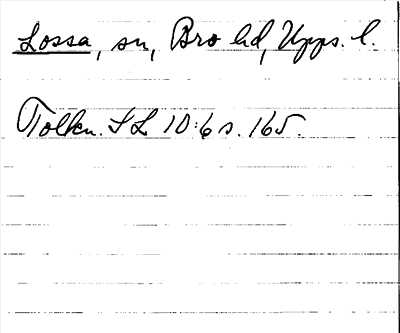 Lossa, sn, Bro hd, Upps. l.
Tolkn. SL 10:6 s. 165.